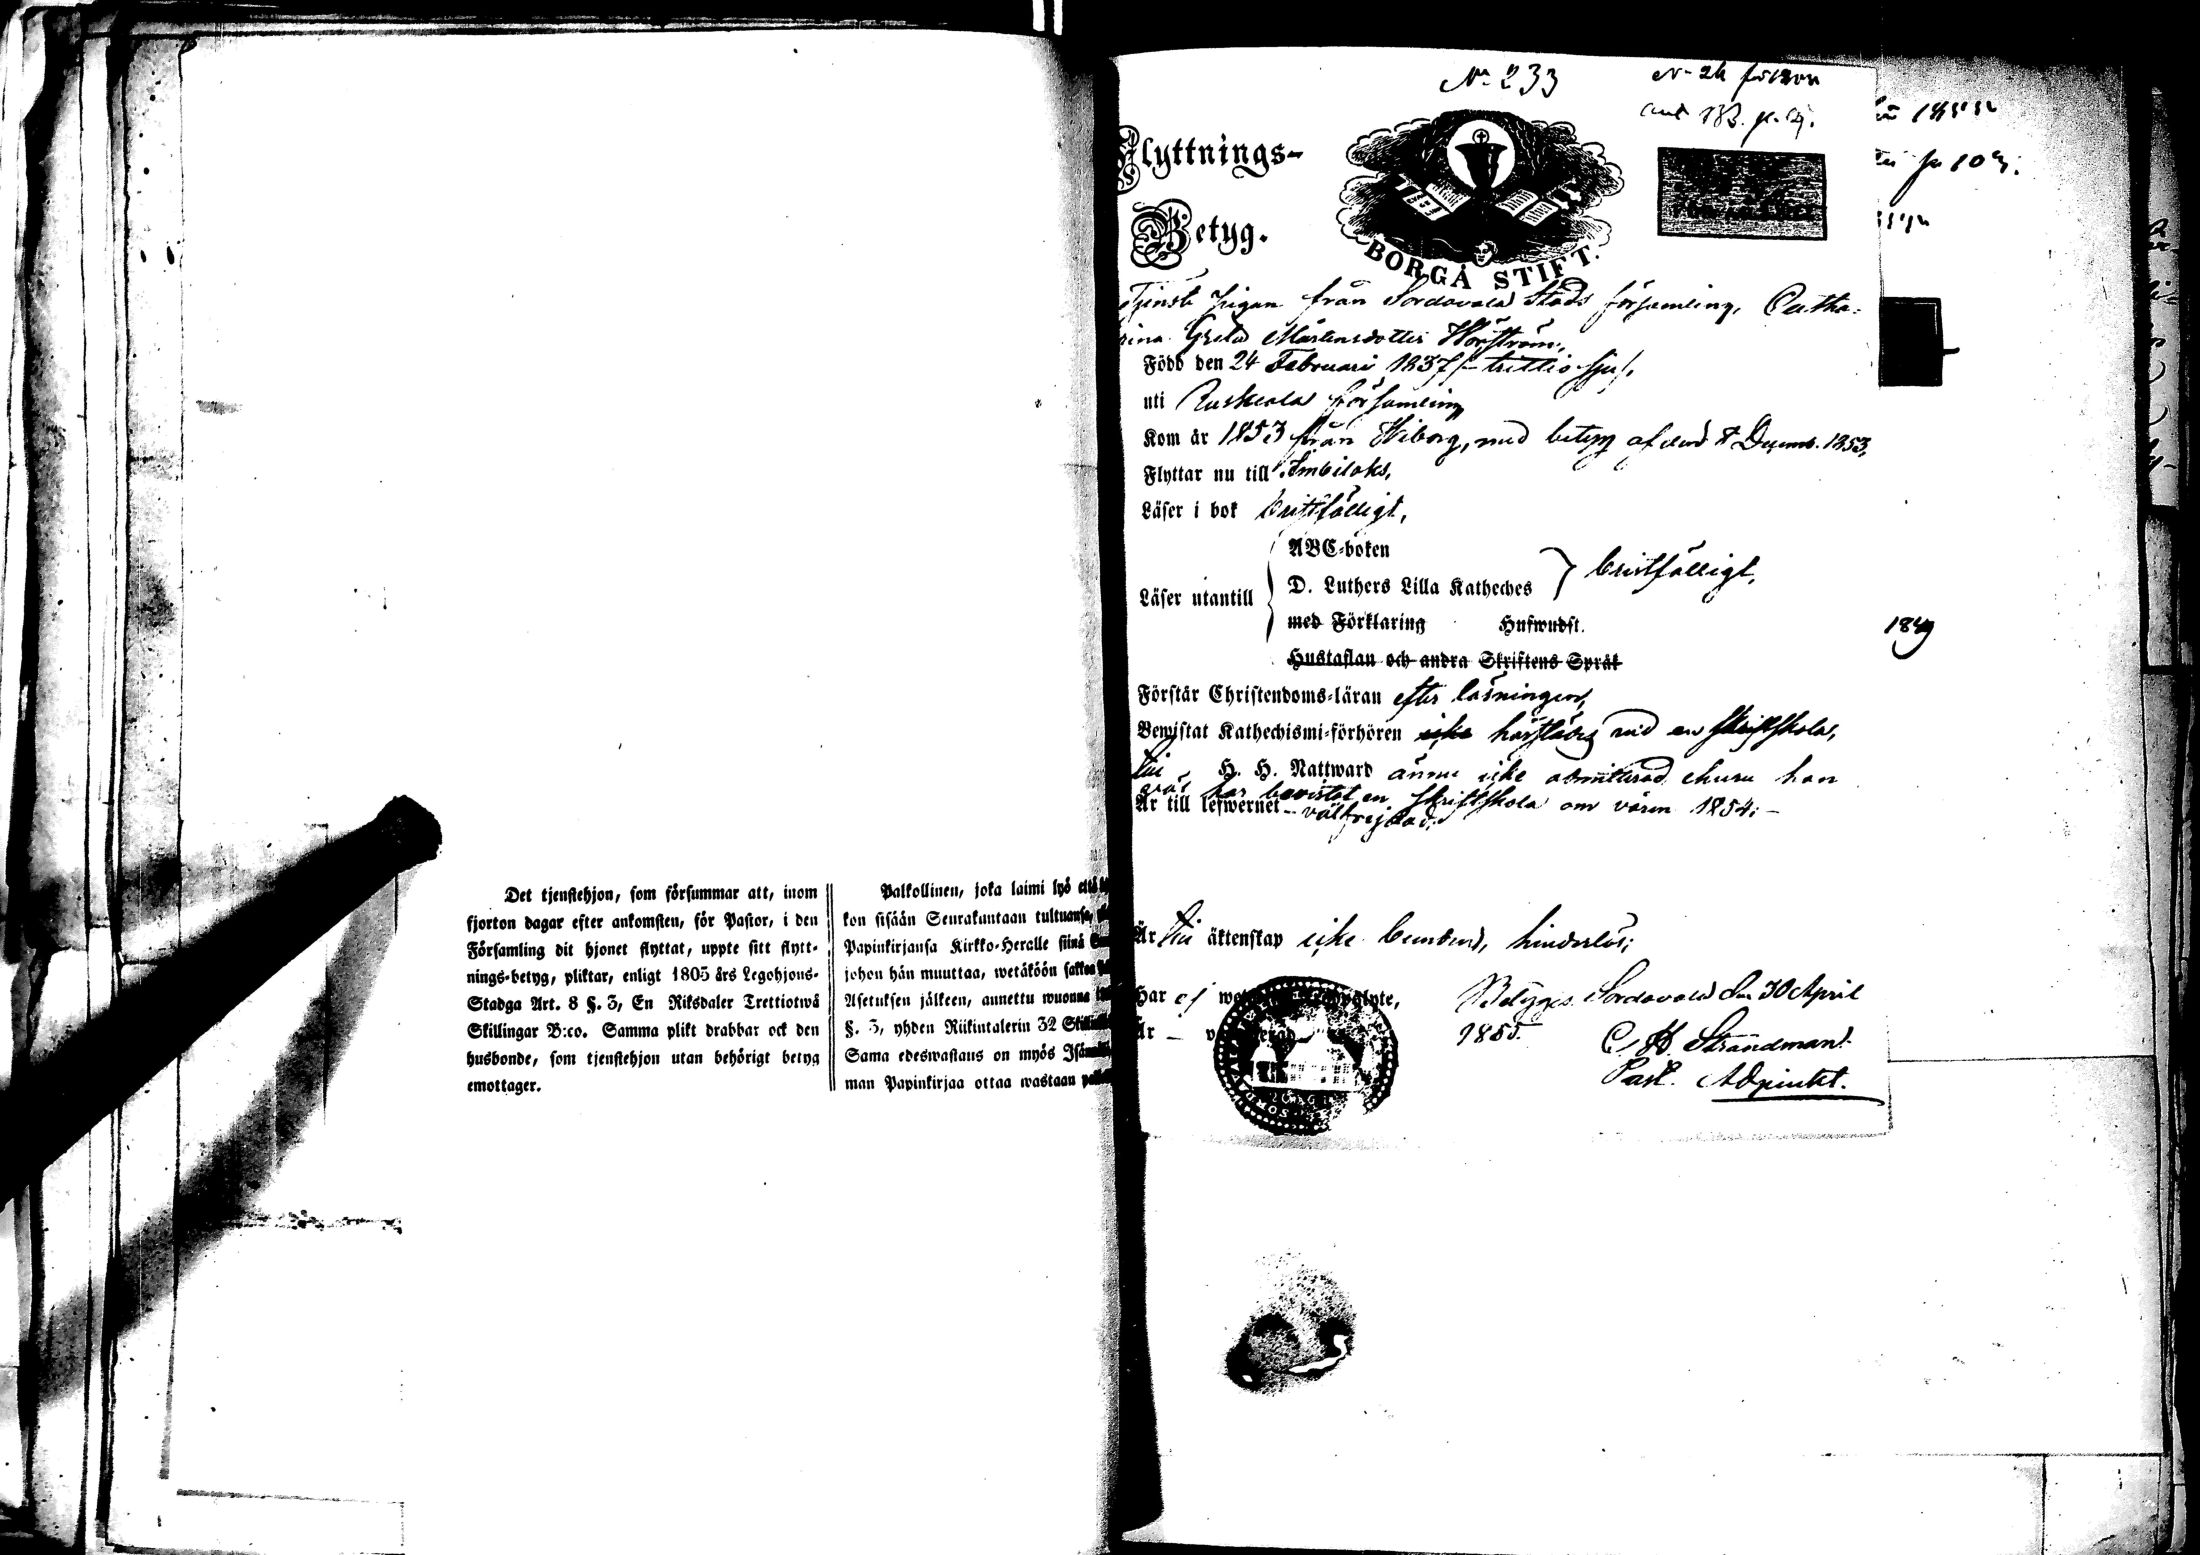 Det tjenstehjon, som försummar att, inom
fjorton dagar efter ankomsten, för Pastor, i den
Församling dit hjonet flyttat, uppte sitt flytt-
nings-betyg, pliktar, enligt 1805 års Legohjons-
Stadga Art. 8 §. 3, En Riksdaler Trettiotwå
Skillingar B:co. Samma plikt drabbar ock den
husbonde, som tjenstehjon utan behörigt betyg
emottager.
Palkollinen, joka laimi lyö että
kon sisään Seurakuntaan tultuansa,
Papinkirjansa Kirkko-Heralle siinä
johon hän muuttaa, wetäköön sakkoa
Asetuksen jälkeen, annettu wuonna
§. 3, yhden Riikintalerin 32
Sama edeswastaus on myös
man Papinkirjaa ottaa wastaan
No 233
Flyttnings-
Betyg.
BORGÅ STIFT.
Tjenste pigan från Sordavala Stads församling, Catha-
rina Greta Mårtensdotter Hörström,
Född den 24 Februari 1837 /trettio sju/,
uti Ruskeala församling
Kom år 1853 från Wiborg, med betyg af den 8 Decemb. 1853,
Flyttar nu till Imbilaks,
Läser i bok bristfälligt,
Läser utantill
ABC-boken
D. Luthers Lilla Katheches
med Förklaring Hufwudst.
bristfälligt,
Hustaflan och andra Skriftens Språk
1849
Förstår Christendoms-läran efter läsningen,
Bewistat Kathechismi-förhören icke härstädes vid en Skriftskola,
till H. H. Nattward ännu icke admitterad ehuru hon
har bevistat en Skriftskola om våren 1854; -
Är till lefwernet - välfrejdad.
Är till äktenskap icke bunden, hinderlös;
Har ej
Betygas Sordavala den 30 April
1855.
C H Strandman
Past. Adjunkt.